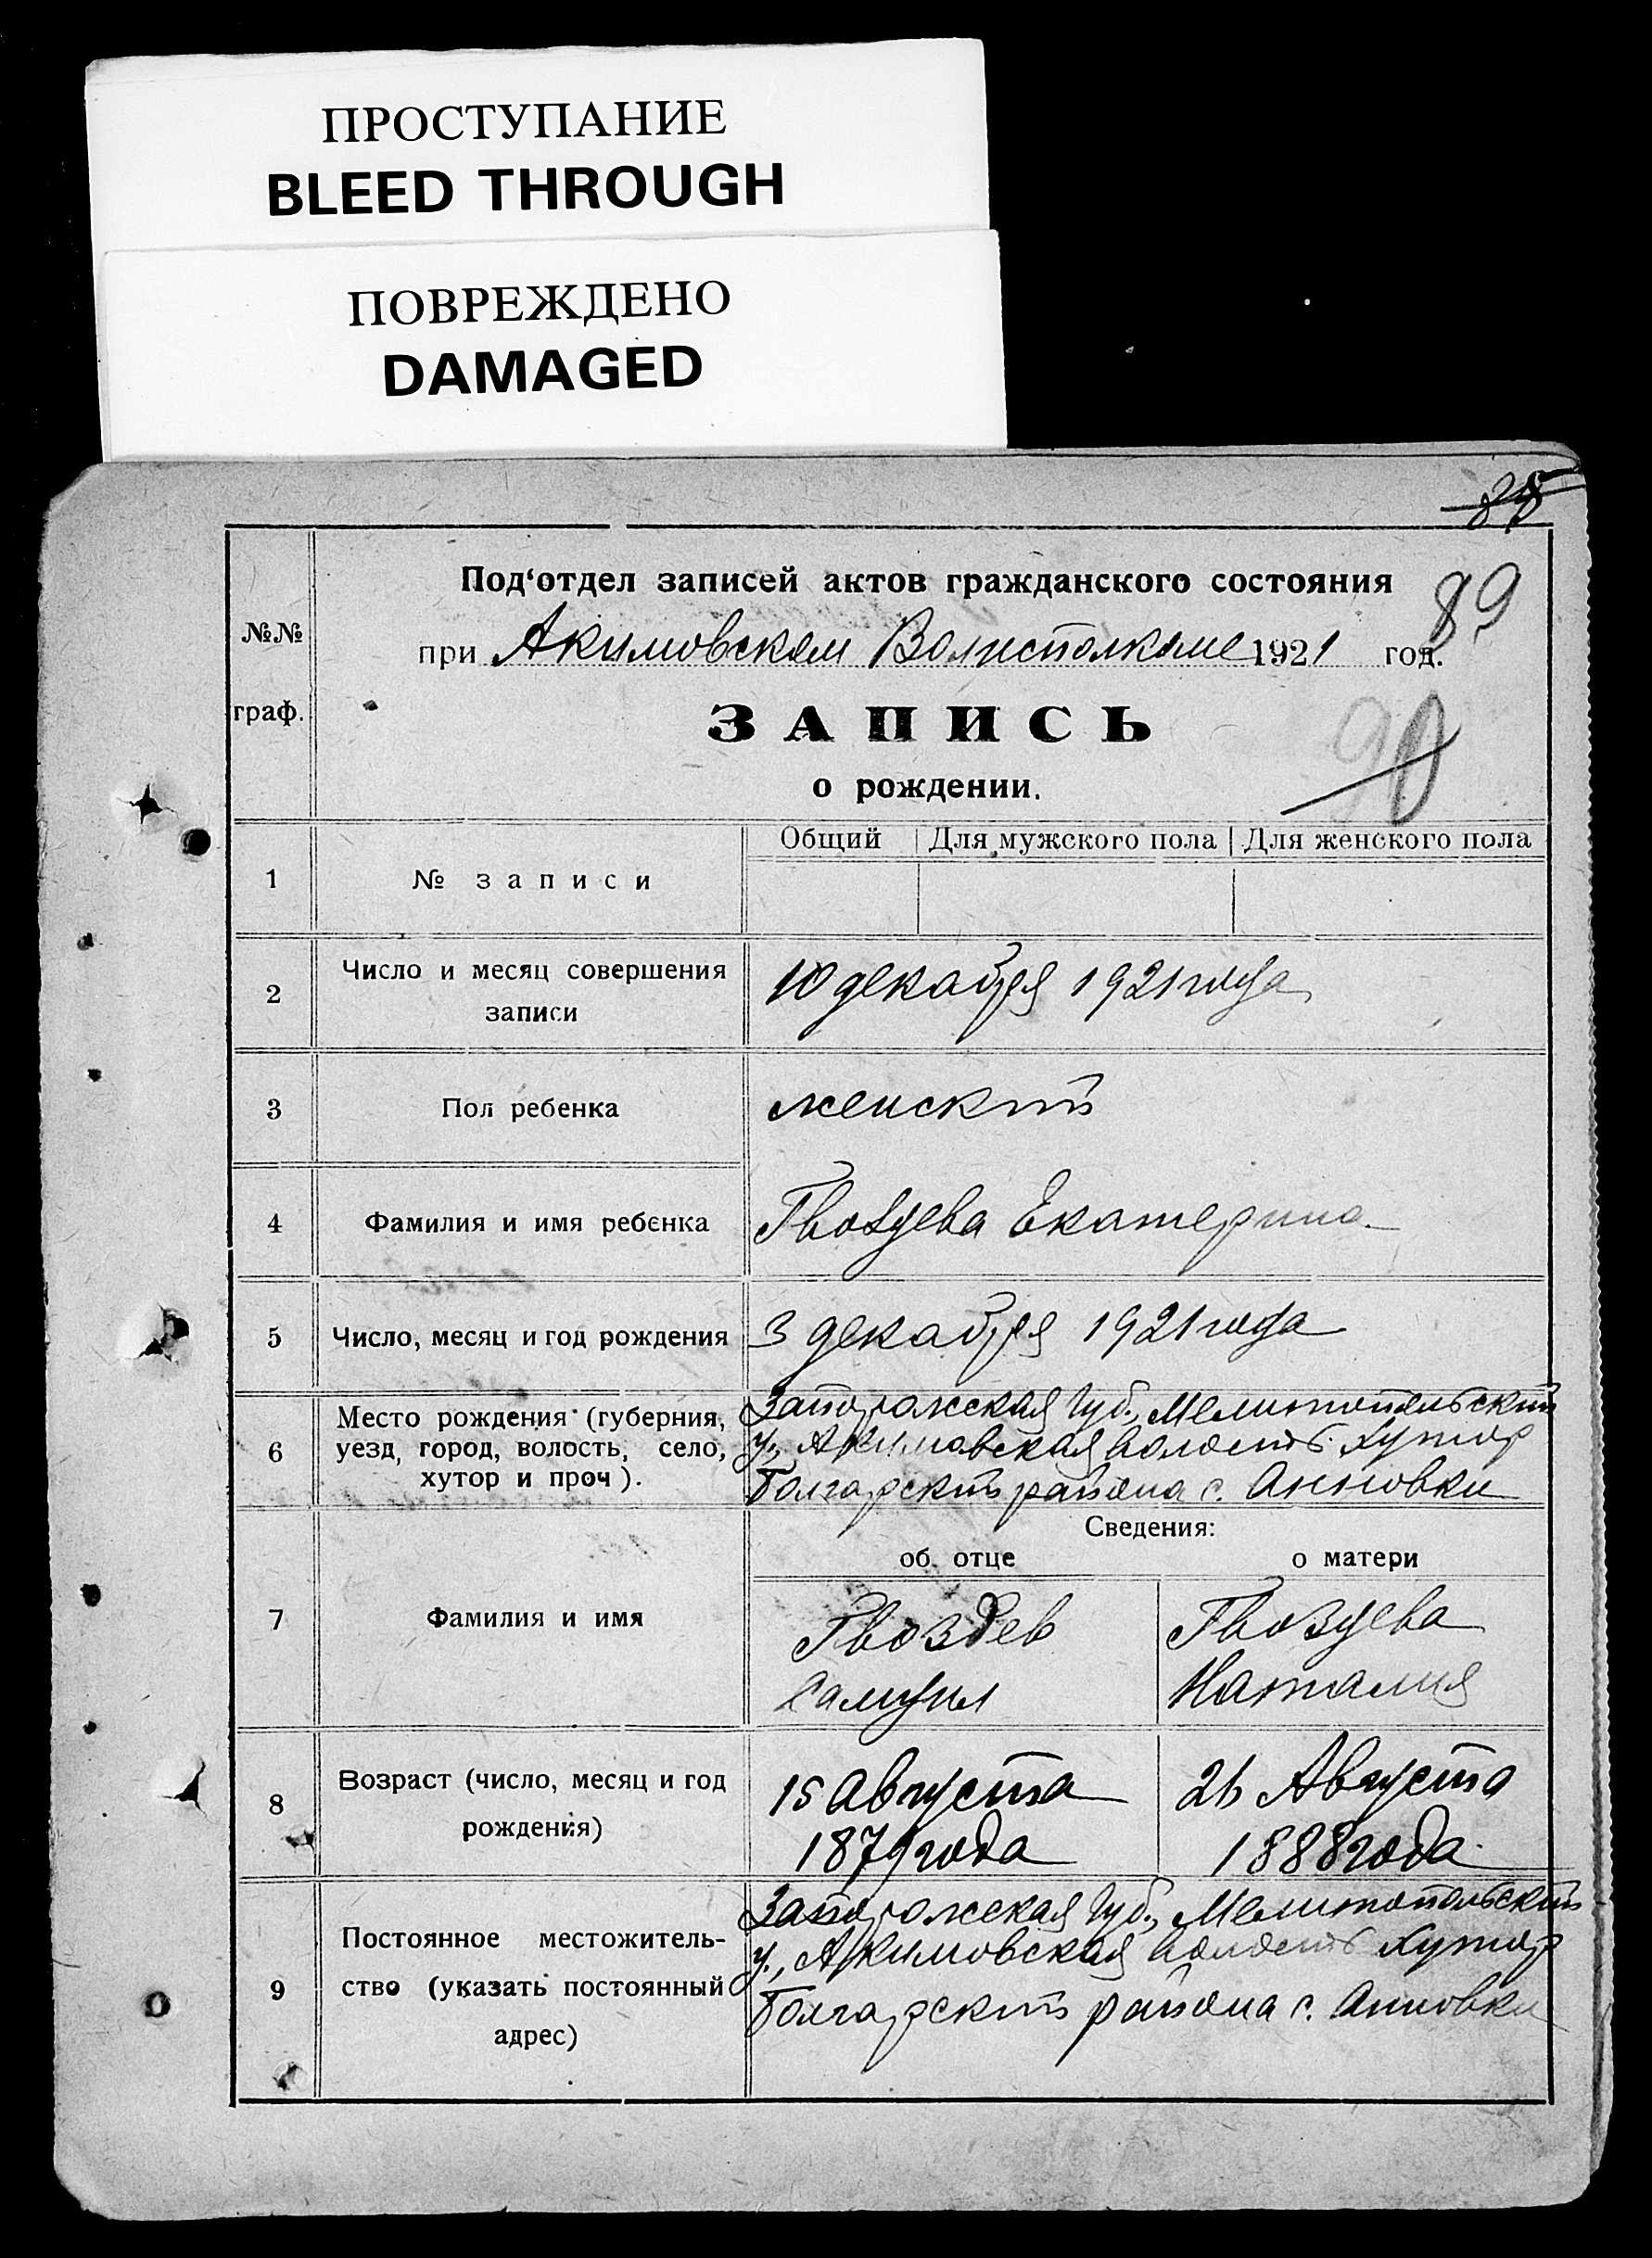 ПРОСТУПАНИЕ
BLEED THROUGH
ПОВРЕЖДЕНО
DAMAGED
Под‘отдел записей актов гражданского состояния
89
№№
при Акимовском Волисполкоме 1921 год.
граф.
ЗАПИСЬ
90
о рождении.
Общий Для мужского пола Для женского пола
1 № записи
2 Число и месяц совершения записи
10 декабря 1921 года
3 Пол ребенка
женский
4 Фамилия и имя ребенка
Гвоздева Екатерина
5 Число, месяц и год рождения
3 декабря 1921 года
6 Место рождения (губерния,
уезд, город, волость, село,
хутор и проч).
Запорожская губ., Мелитопольский
у., Акимовская волость. Хутор
Болгарский района с. Анновки
Сведения:
об отце о матери
7 Фамилия и имя
Гвоздев Гвоздева
Самуил Наталия
8 Возраст (число, месяц и год
рождения)
15 Августа 26 Августа
1879 года 1888 года
9 Постоянное местожитель-
ство (указать постоянный
адрес)
Запорожская губ., Мелитопольский
у., Акимовская волость Хутор
Болгарский района с. Анновки